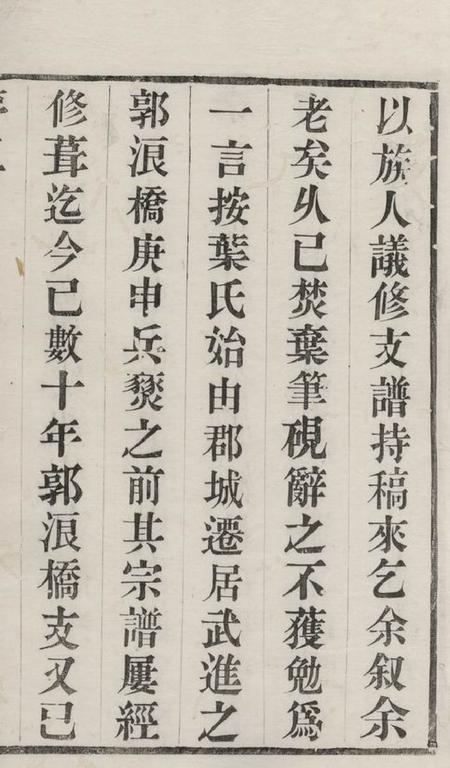 以族人議修支譜持稿來乞余叙余
老矣久已焚棄筆硯辭之不獲勉爲
一言按葉氏始由郡城遷居武進之
郭浪橋庚申兵燹之前其宗譜屢經
修葺迄今已數十年郭浪橋支又已